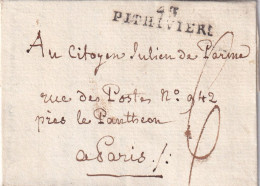 43
PITHIVIERS
Au Citoyen Julien de Parme
rue des Postes N.º 942
près le Panthéon
a Paris ./.